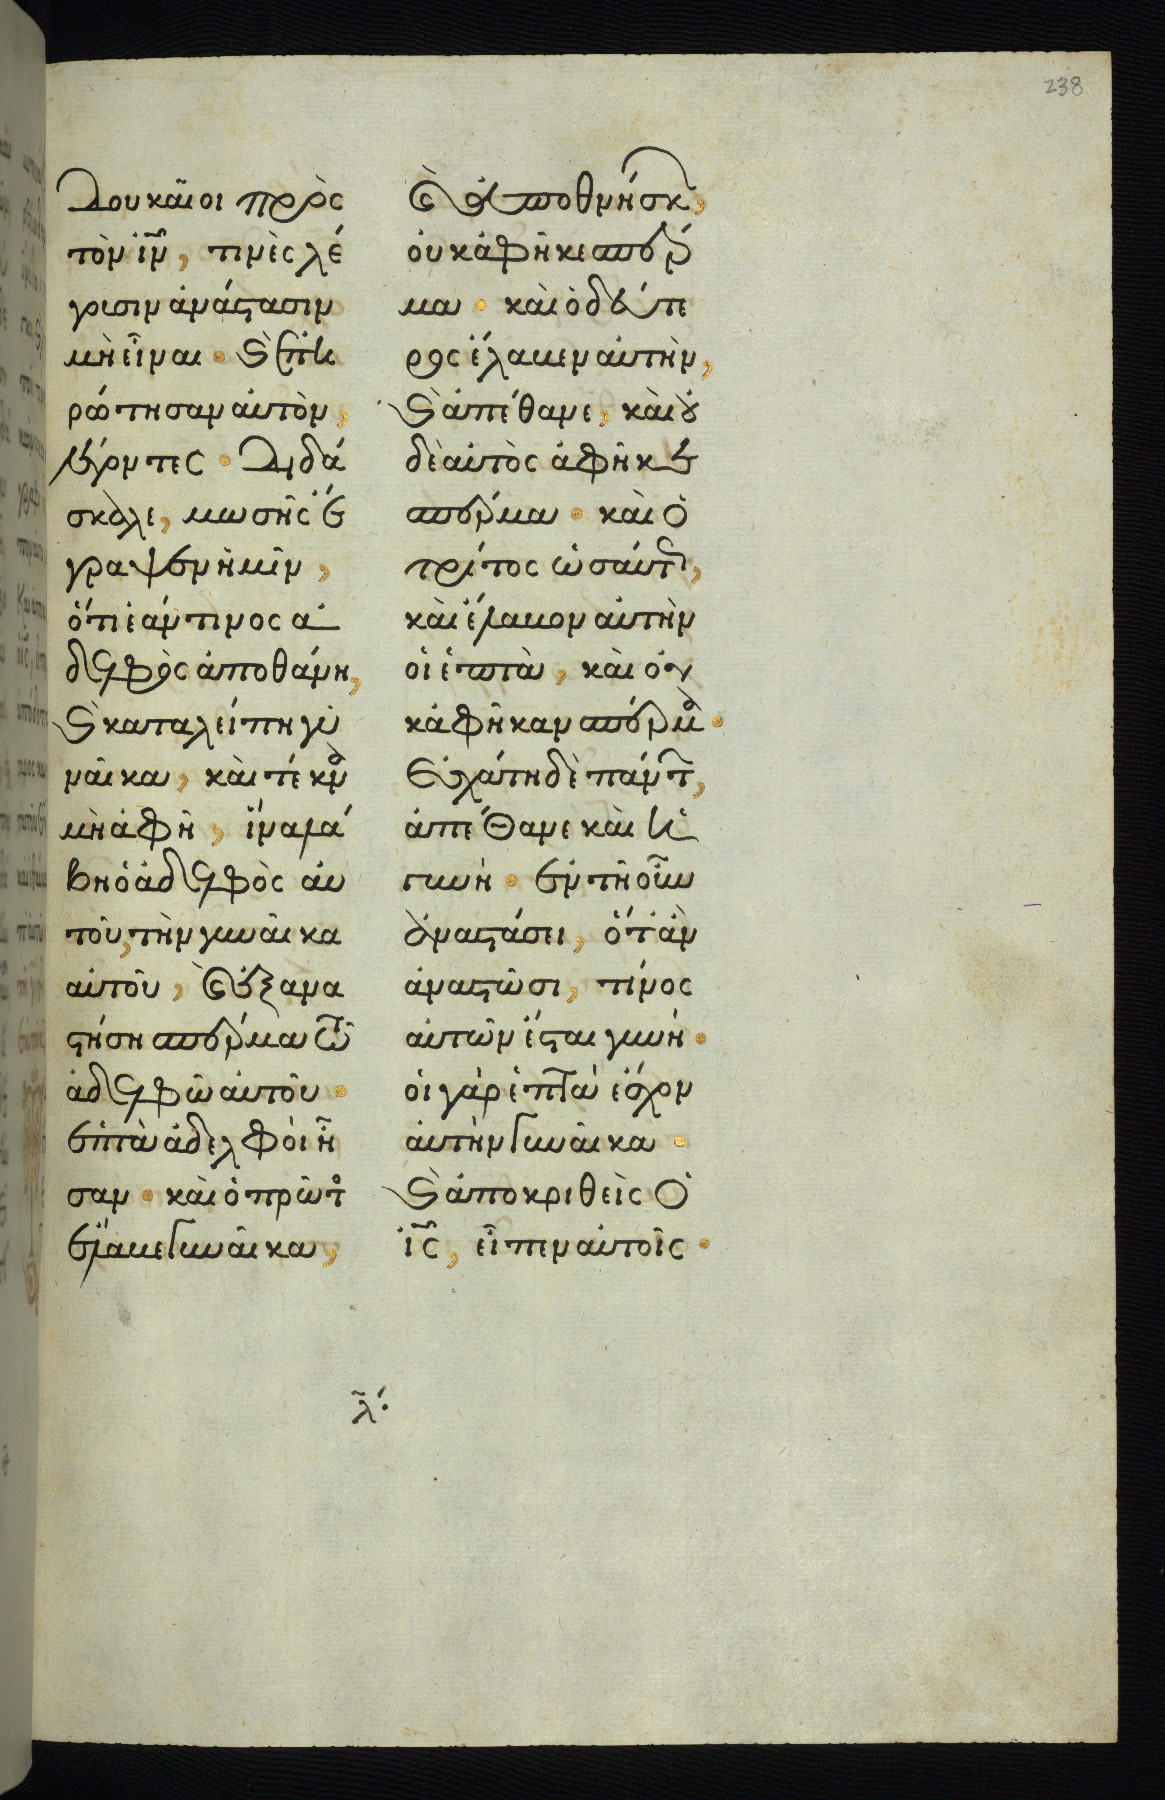 238
δουκαῖοι πρὸς
τὸν ἰν̄, τινὲς λέ
γουσιν ἀνάστασιν
μὴ εἶναι · καὶ ἐπη
ρώτησαν αὐτὸν,
λέγοντες · διδά
σκαλε, μωσῆς ἔ
γραψεν ἡμῖν,
ὅτι ἐάν τινος ἀ
δελφὸς ἀποθάνη,
καὶ καταλείπη γυ
ναῖκα, καὶ τέκνα
μὴ ἀφῆ, ἵνα λά
βη ὁ ἀδελφὸς αὐ
τοῦ, τὴν γυναῖκα
αὐτοῦ, καὶ ἐξανα
στήση σπέρμα τῶ
ἀδελφῶ αὐτοῦ ·
ἑπτὰ ἀδελφοὶ ἦ
σαν · καὶ ὁ πρῶτος
ἔλαβε γυναῖκα,
καὶ ἀποθνήσκων,
οὐκ ἀφῆκε σπέρ
μα · καὶ ὁ δεύτε
ρος ἔλαβεν αὐτὴν,
καὶ ἀπέθανε, καὶ οὐ
δὲ αὐτὸς ἀφῆκε
σπέρμα · καὶ ὁ
τρίτος ὡσαύτως,
καὶ ἔλαβον αὐτὴν
οἱ ἑπτὰ, καὶ οὐ
κ ἀφῆκαν σπέρμα ·
ἐσχάτη δὲ πάντων,
ἀπέθανε καὶ ἡ
γυνή · ἐν τῆ οὖν
ἀναστάσει, ὅταν
ἀναστῶσι, τίνος
αὐτῶν ἔσται γυνή ·
οἱ γὰρ ἑπτὰ ἔσχον
αὐτὴν γυναῖκα ·
καὶ ἀποκριθεὶς ὁ
ἰς̄, εἶπεν αὐτοῖς ·
λ̄·